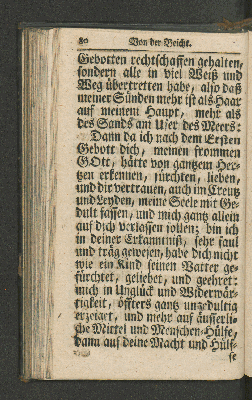 80 Von der Beicht.
Gebotten rechtschaffen gehalten,
sondern alle in viel Weiß und
Weg übertretten habe, also daß
meiner Sünden mehr ist als Haar
auf meinem Haupt, mehr als
des Sands am Ufer des Meers:
Dann da ich nach dem Ersten
Gebott dich, meinen frommen
GOtt, hätte von gantzem Her-
tzen erkennen, fürchten, lieben,
und dir vertrauen, auch im Creutz
und Leyden, meine Seele mit Ge-
dult fassen, und mich gantz allein
auf dich verlassen sollen; bin ich
in deiner Erkanntniß, sehr faul
und träg gewesen, habe dich nicht
wie ein Kind seinen Vatter ge-
fürchtet, geliebet, und geehret:
mich in Unglück und Widerwär-
tigkeit, öffters gantz ungedultig
erzeiget, und mehr auf äusserli-
che Mittel und Menschen-Hülfe,
dann auf deine Macht und Hülf-
fe